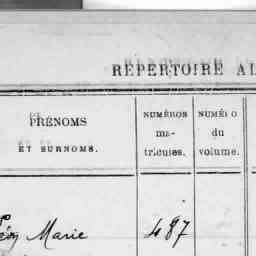 RÉPERTOIRE AL
PRÉNOMS
ET SURNOMS.
NUMÉROS
ma-
tricules.
NUMÉRO
du
volume.
Marie 487